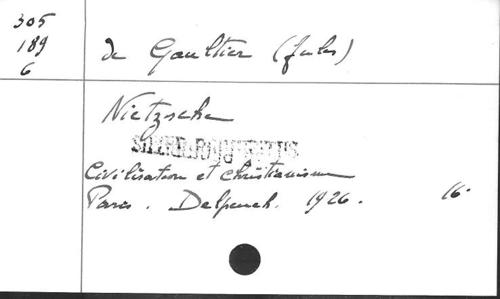 305
189
6
de Gaultier (Jules)
Nietzsche
Civilisation et christianisme
Paris. Delpeuch. 1926. 16.